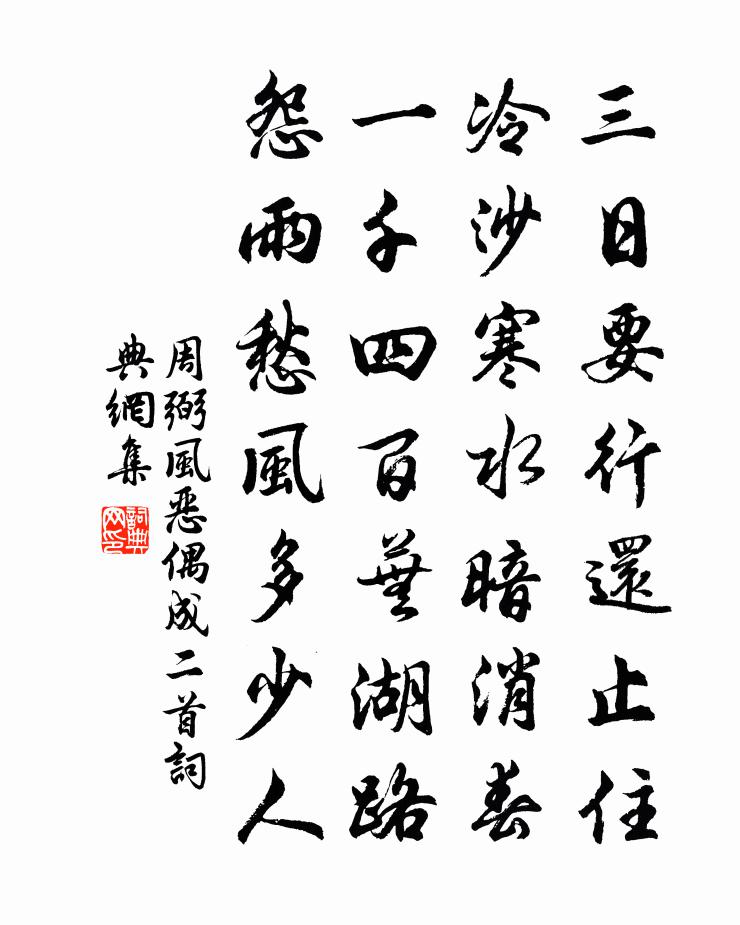 三日要行還止住
冷沙寒水暗消春
一千四百蕪湖路
怨雨愁風多少人
周弼風惡偶成二首詞
典網集
詞典
网印